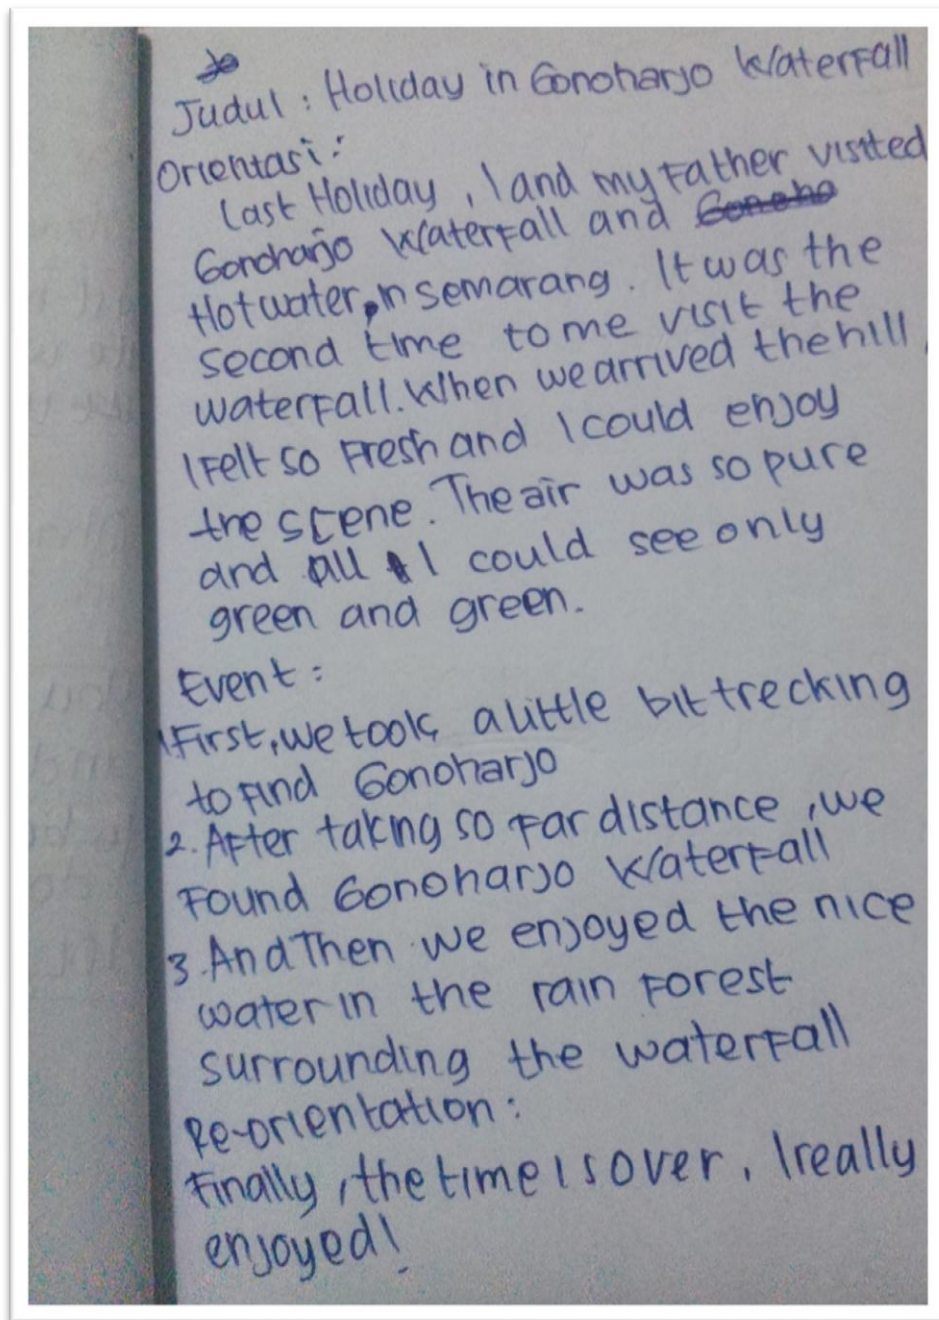 Judul : Holiday in Gonoharjo Waterfall
Orientasi :
Last Holiday , I and my Father visited
Gonoharjo Waterfall and
Hotwater, in semarang. It was the
second time to me visit the
waterfall. When we arrived the hill,
I felt so Fresh and I could enjoy
the scene. The air was so pure
and all I could see only
green and green.
Event :
1 First, we took a little bit trecking
to find Gonoharjo
2. After taking so far distance, we
Found Gonoharjo Waterfall
3. And Then we enjoyed the nice
water in the rain forest
surrounding the waterfall
Re-orientation :
Finally, the time is over, I really
enjoyed!